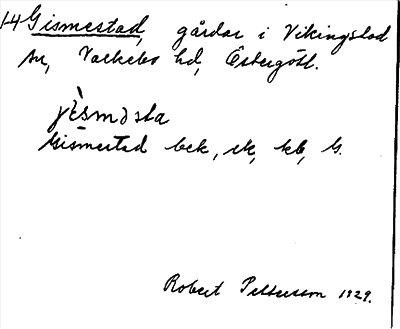 14 Gismestad, gårdar i Vikingstad
sn, Valkebo hd, Östergötl.
Gismestad bek, ek, kb, G.
Robert Pettersson 1929.